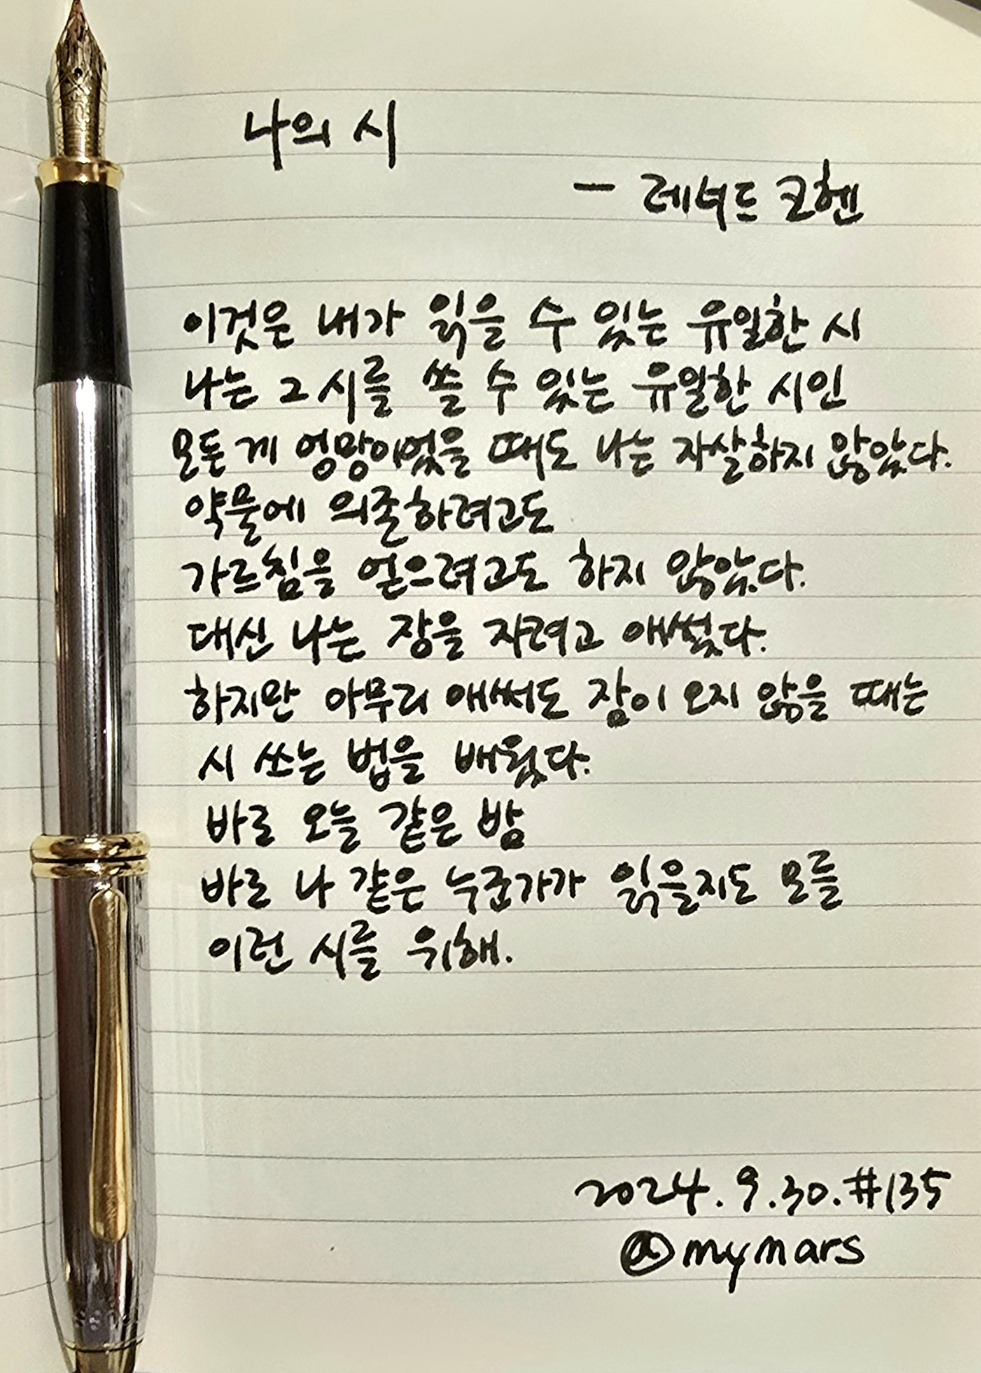 나의 시
- 레너드 코헨
이것은 내가 읽을 수 있는 유일한 시
나는 그 시를 쓸 수 있는 유일한 시인
모든 게 엉망이었을 때도 나는 자살하지 않았다.
약물에 의존하려고도
가르침을 얻으려고도 하지 않았다.
대신 나는 잠을 자려고 애썼다.
하지만 아무리 애써도 잠이 오지 않을 때는
시 쓰는 법을 배웠다.
바로 오늘 같은 밤
바로 나 같은 누군가가 읽을지도 모를
이런 시를 위해.
2024.9.30.#135
@mymars